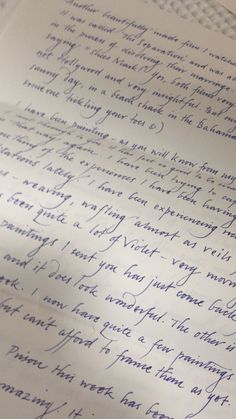 Another beautifully made film I watched
was called 'The Separation' and was a
in the process of dissolving their marriage.
saying "Nuts
for, both films very
not Hollywood and very insightful. But my
sunny day, in a beach shack in the Bahamas
someone tickling your toes
I have been painting - as you will know from my
I have been
one thing of the experiences I have been having
itations lately. I have been experiencing re
es - weaving, wafting almost as veils,
s been quite a lot of Violet - very morn
paintings I sent you has just come back
and it does look wonderful. The other is
eek. I now have quite a few paintings
but can't afford to frame them as yet.
Prison this week has been
mazing! It i